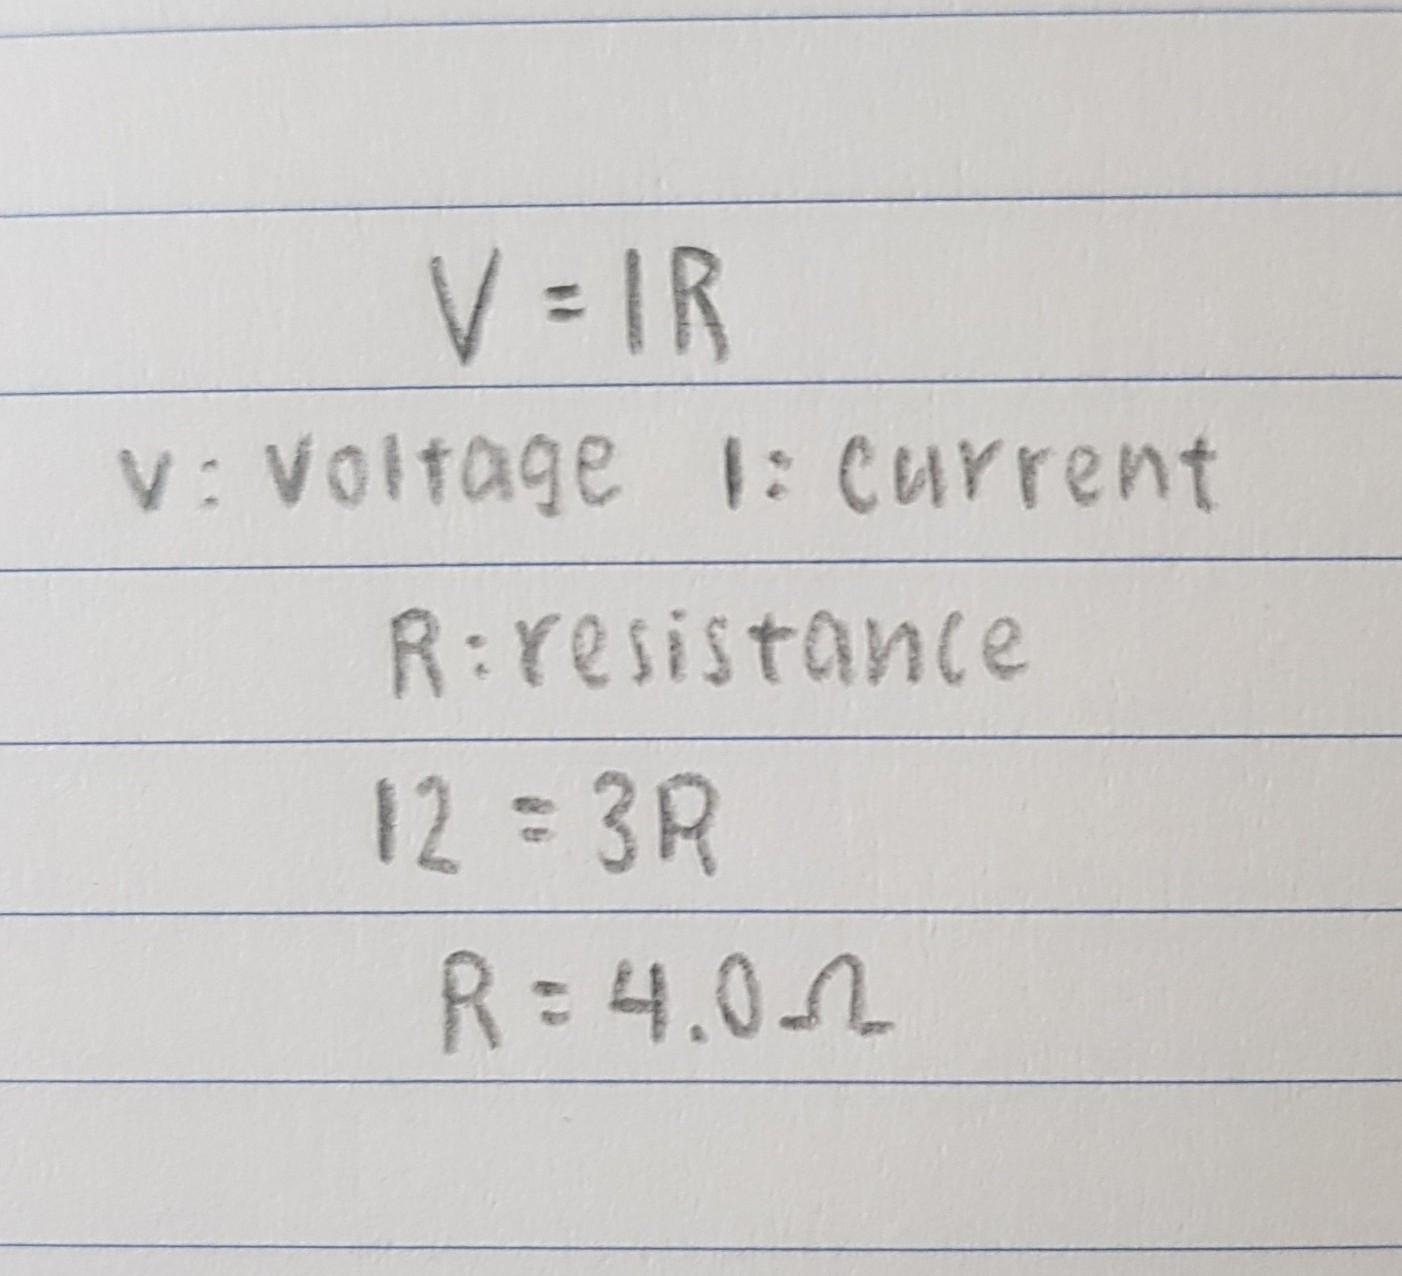 V = IR
V: Voltage I: current
R: resistance
12 = 3R
R = 4.0Ω